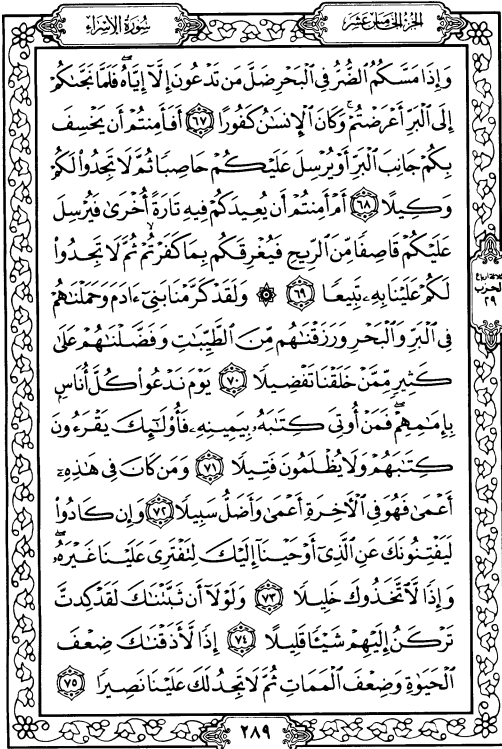 سُورَةُ الإِسْرَاء
الجُزءُ الخَامِسُ عَشَر
وَإِذَا مَسَّكُمُ ٱلضُّرُّ فِي ٱلْبَحْرِ ضَلَّ مَن تَدْعُونَ إِلَّآ إِيَّاهُۖ فَلَمَّا نَجَّىٰكُمْ
إِلَى ٱلْبَرِّ أَعْرَضْتُمْۚ وَكَانَ ٱلْإِنسَٰنُ كَفُورًا ٦٧ أَفَأَمِنتُمْ أَن يَخْسِفَ
بِكُمْ جَانِبَ ٱلْبَرِّ أَوْ يُرْسِلَ عَلَيْكُمْ حَاصِبًا ثُمَّ لَا تَجِدُوا۟ لَكُمْ
وَكِيلًا ٦٨ أَمْ أَمِنتُمْ أَن يُعِيدَكُمْ فِيهِ تَارَةً أُخْرَىٰ فَيُرْسِلَ
عَلَيْكُمْ قَاصِفًا مِّنَ ٱلرِّيحِ فَيُغْرِقَكُم بِمَا كَفَرْتُمْۙ ثُمَّ لَا تَجِدُوا۟
لَكُمْ عَلَيْنَا بِهِۦ تَبِيعًا ٦٩ ۞ وَلَقَدْ كَرَّمْنَا بَنِىٓ ءَادَمَ وَحَمَلْنَٰهُمْ
فِى ٱلْبَرِّ وَٱلْبَحْرِ وَرَزَقْنَٰهُم مِّنَ ٱلطَّيِّبَٰتِ وَفَضَّلْنَٰهُمْ عَلَىٰ
كَثِيرٍ مِّمَّنْ خَلَقْنَا تَفْضِيلًا ٧٠ يَوْمَ نَدْعُوا۟ كُلَّ أُنَاسٍۭ
بِإِمَٰمِهِمْۖ فَمَنْ أُوتِىَ كِتَٰبَهُۥ بِيَمِينِهِۦ فَأُو۟لَٰٓئِكَ يَقْرَءُونَ
كِتَٰبَهُمْ وَلَا يُظْلَمُونَ فَتِيلًا ٧١ وَمَن كَانَ فِى هَٰذِهِۦٓ
أَعْمَىٰ فَهُوَ فِى ٱلْءَاخِرَةِ أَعْمَىٰ وَأَضَلُّ سَبِيلًا ٧٢ وَإِن كَادُوا۟
لَيَفْتِنُونَكَ عَنِ ٱلَّذِىٓ أَوْحَيْنَآ إِلَيْكَ لِتَفْتَرِىَ عَلَيْنَا غَيْرَهُۥۖ
وَإِذًا لَّٱتَّخَذُوكَ خَلِيلًا ٧٣ وَلَوْلَآ أَن ثَبَّتْنَٰكَ لَقَدْ كِدتَّ
تَرْكَنُ إِلَيْهِمْ شَيْـًٔا قَلِيلًا ٧٤ إِذًا لَّأَذَقْنَٰكَ ضِعْفَ
ٱلْحَيَوٰةِ وَضِعْفَ ٱلْمَمَاتِ ثُمَّ لَا تَجِدُ لَكَ عَلَيْنَا نَصِيرًا ٧٥
ثلاثة أرباع
الحزب
٢٩
٢٨٩